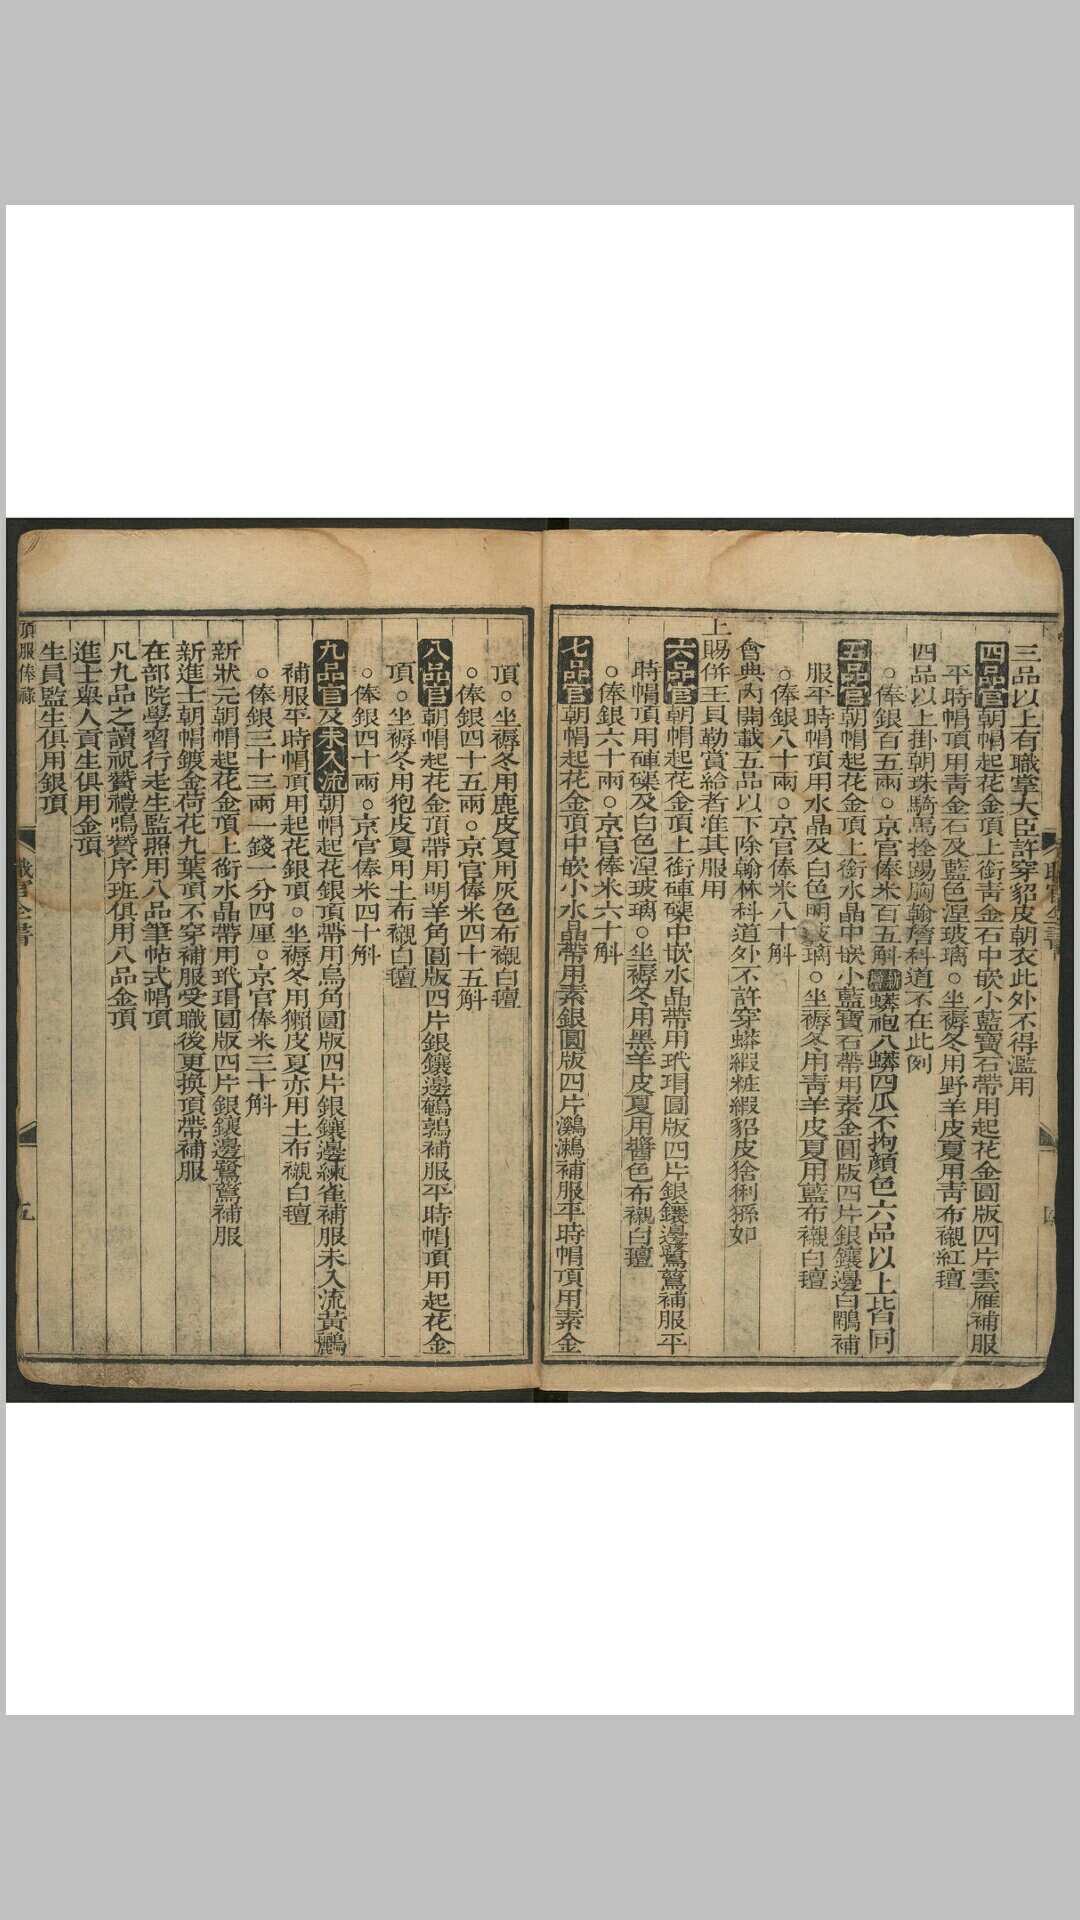 三品以上有職掌大臣許穿貂皮朝衣此外不得濫用
四品官朝帽起花金頂上銜青金石中嵌小藍寶石帶用起花金圓版四片雲雁補服
平時帽頂用青金石及藍色涅玻璃。坐褥冬用野羊皮夏用青布襯紅氊
四品以上掛朝珠騎馬拴踢胸翰詹科道不在此例
。俸銀百五兩。京官俸米百五斛 蟒袍八蟒四爪不拘顏色六品以上皆同
五品官朝帽起花金頂上銜水晶中嵌小藍寶石帶用素金圓版四片銀鑲邊白鷴補
服平時帽頂用水晶及白色明玻璃。坐褥冬用青羊皮夏用藍布襯白氊
。俸銀八十兩。京官俸米八十斛
會典內開載五品以下除翰林科道外不許穿蟒緞粧緞貂皮猞猁猻如
上賜併王貝勒賞給者准其服用
六品官朝帽起花金頂上銜硨磲中嵌水晶帶用玳瑁圓版四片銀鑲邊鷺鷥補服平
時帽頂用硨磲及白色涅玻璃。坐褥冬用黑羊皮夏用醬色布襯白氊
。俸銀六十兩。京官俸米六十斛
七品官朝帽起花金頂中嵌小水晶帶用素銀圓版四片鸂鶒補服平時帽頂用素金
頂。坐褥冬用鹿皮夏用灰色布襯白氊
。俸銀四十五兩。京官俸米四十五斛
八品官朝帽起花金頂帶用明羊角圓版四片銀鑲邊鵪鶉補服平時帽頂用起花金
頂。坐褥冬用狍皮夏用土布襯白氊
。俸銀四十兩。京官俸米四十斛
九品官及未入流朝帽起花銀頂帶用烏角圓版四片銀鑲邊練雀補服未入流黃鸝
補服平時帽頂用起花銀頂。坐褥冬用獺皮夏亦用土布襯白氊
。俸銀三十三兩一錢一分四厘。京官俸米三十斛
新狀元朝帽起花金頂上銜水晶帶用玳瑁圓版四片銀鑲邊鷺鷥補服
新進士朝帽鍍金荷花九葉頂不穿補服受職後更換頂帶補服
在部院學習行走生監照用八品筆帖式帽頂
凡九品之讀祝贊禮鳴贊序班俱用八品金頂
進士舉人貢生俱用金頂
生員監生俱用銀頂
頂服俸祿
職官全書
五